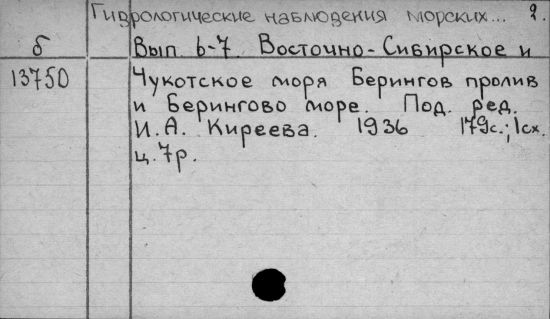 Гидрологические наблюдения морских... 2.
б Вып. 6-7. Восточно-Сибирское и
13750 Чукотское моря Берингов пролив
и Берингово море. Под. ред.
И.А. Киреева. 1936 179с.; 1сх.
ц. 7р.